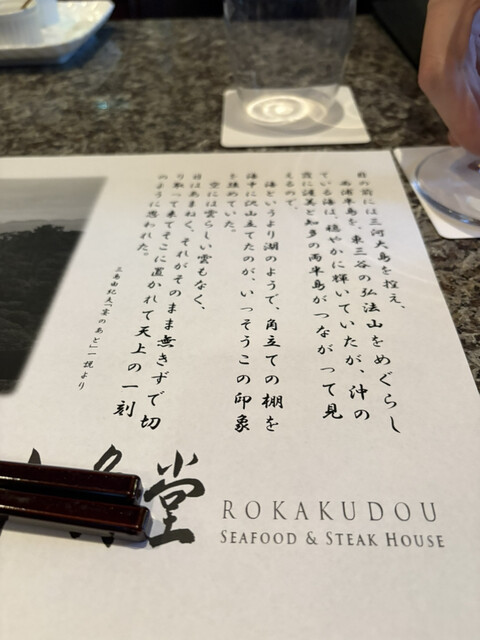 目の前には三河大島を控え、
西浦半島を、東三谷の弘法山をめぐらし
ている海は、穏やかに輝いていたが、沖の
霞に渥美と知多の両半島がつながって見
えるので、
海というより湖のようで、角立ての棚を
海中に沢山立てたのが、いっそうこの印象
を強めていた。
空には雲らしい雲もなく、
目はあまねく、それがそのまま無きずで切
り取って来てそこに置かれて天上の一刻
のように思われた。
三島由紀夫「宴のあと」一説より
堂
ROKAKUDOU
SEAFOOD & STEAK HOUSE